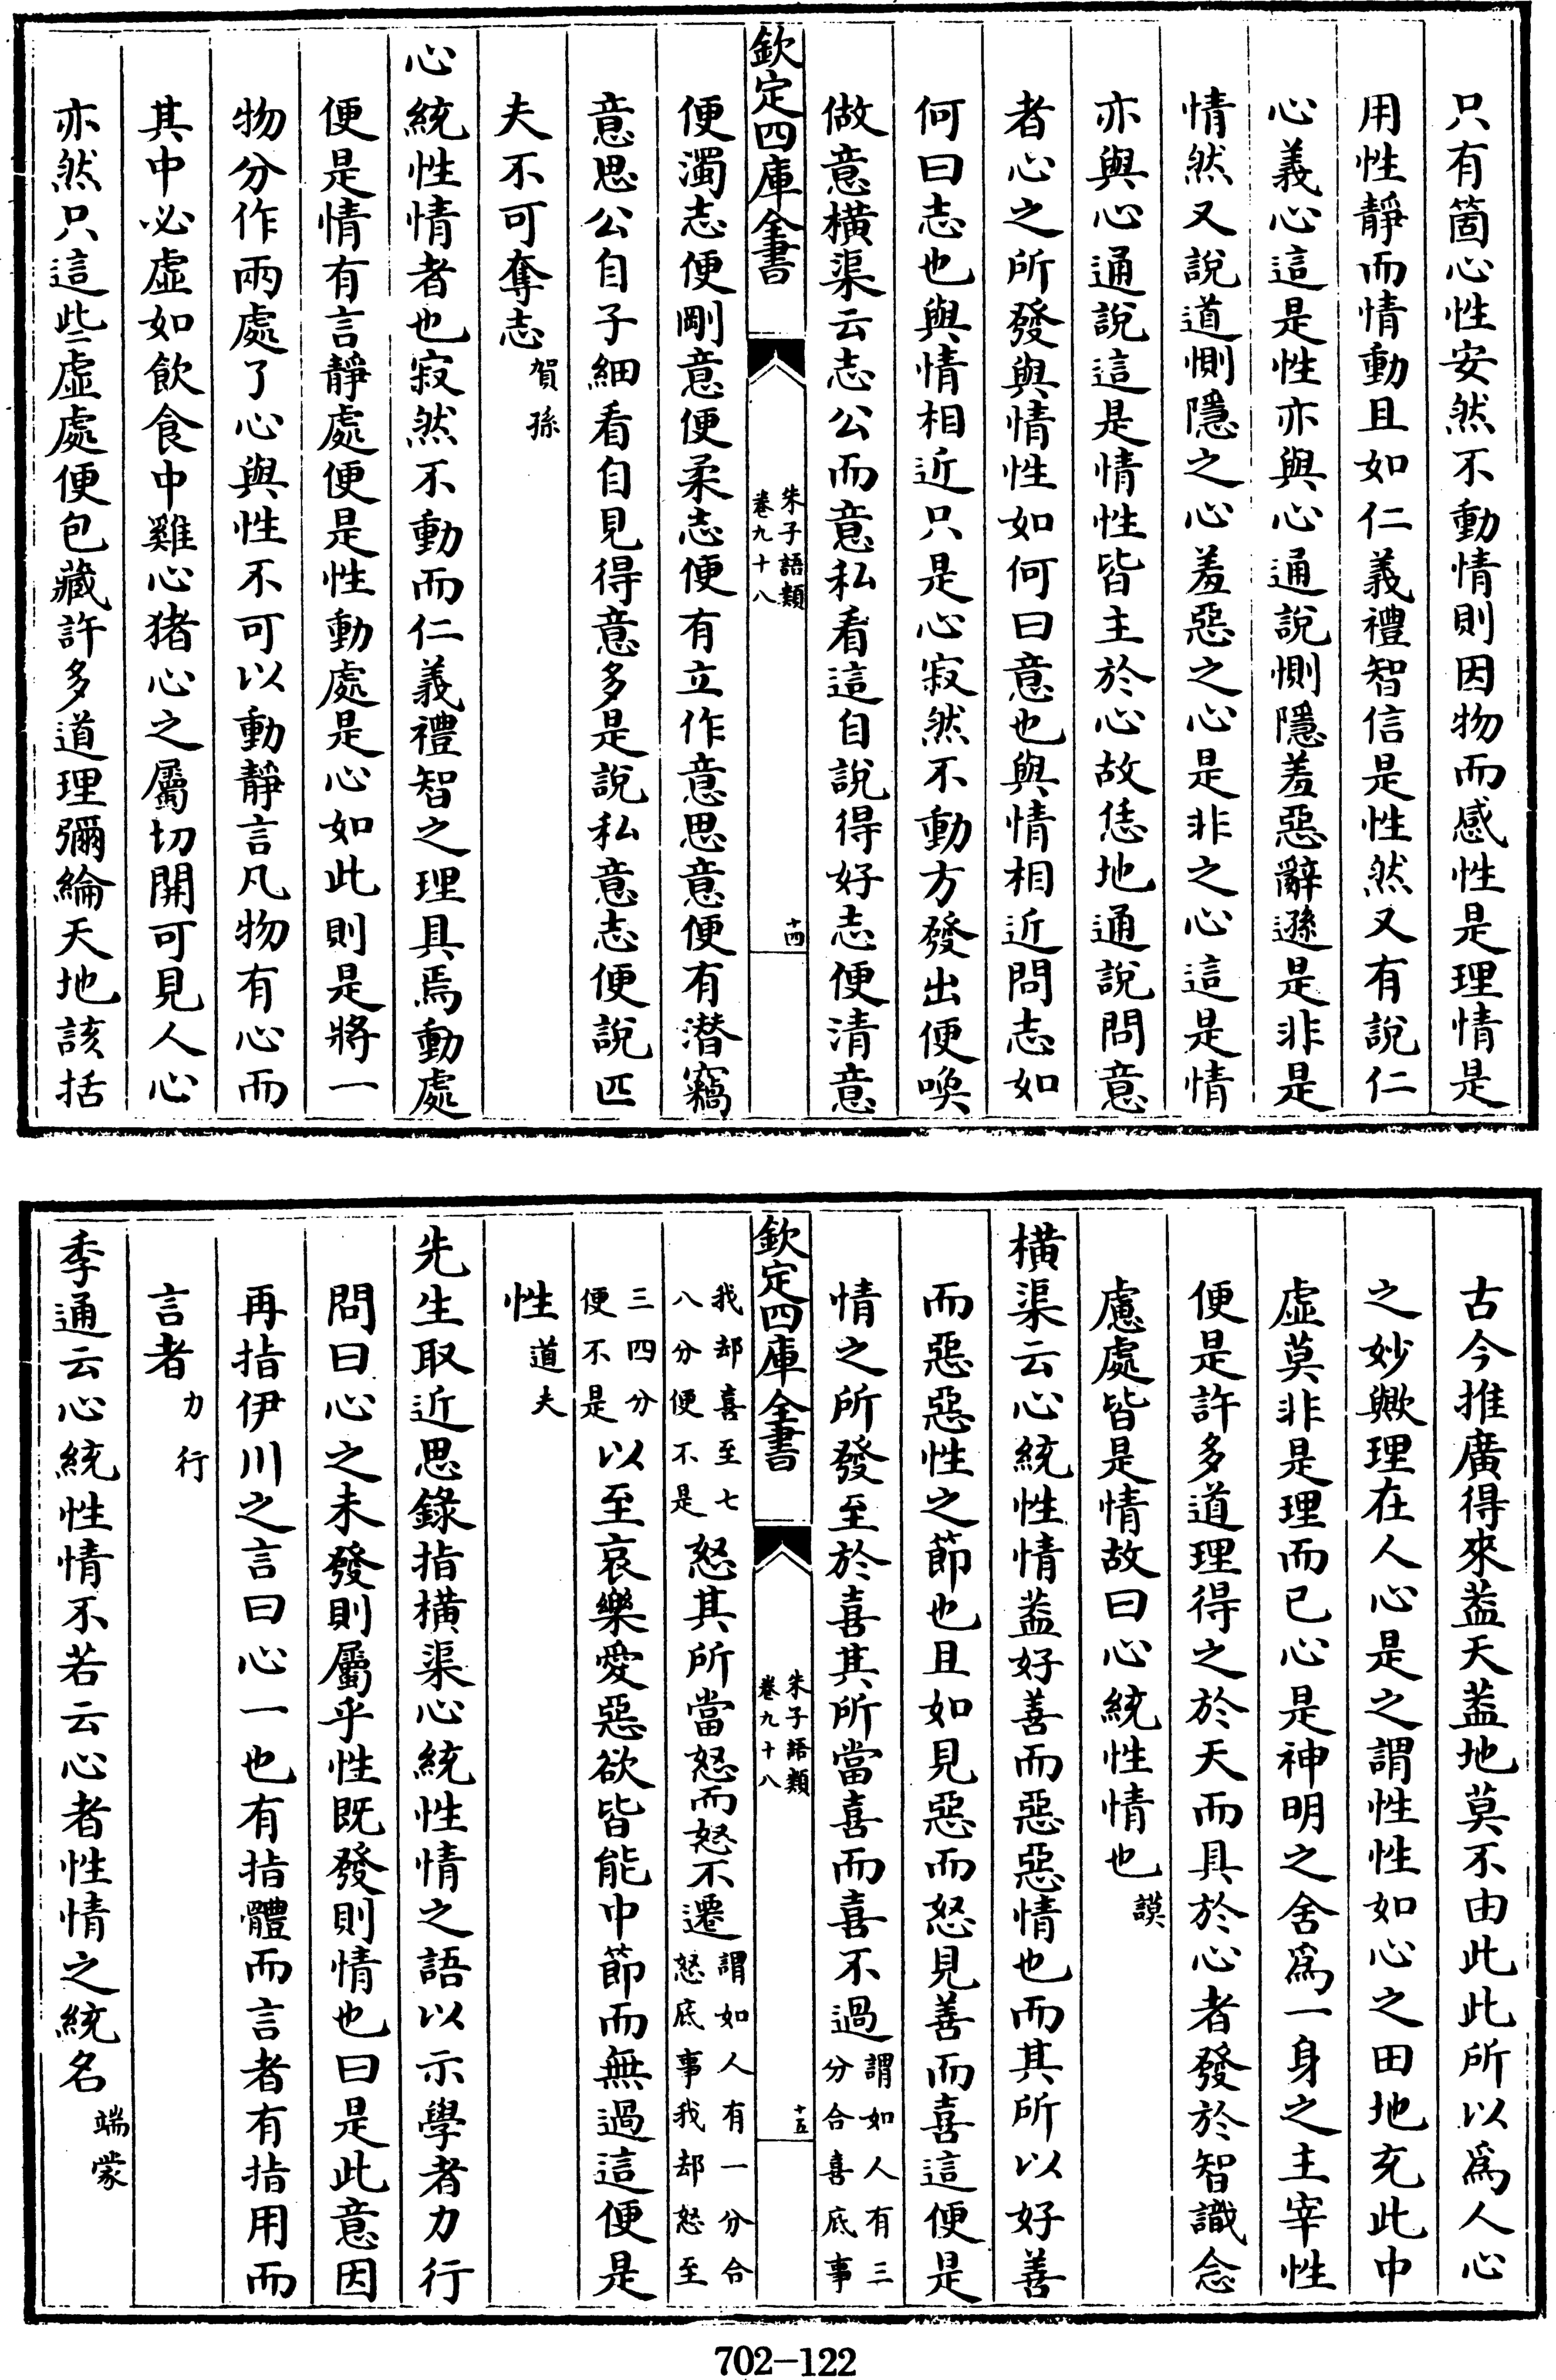 只有箇心性安然不動情則因物而感性是理情是
用性靜而情動且如仁義禮智信是性然又有說仁
心義心這是性亦與心通說惻隱羞惡辭遜是非是
情然又說道惻隱之心羞惡之心是非之心這是情
亦與心通說這是情性皆主於心故恁地通說問意
者心之所發與情性如何曰意也與情相近問志如
何曰志也與情相近只是心寂然不動方發出便喚
做意橫渠云志公而意私看這自說得好志便清意
欽定四庫全書
朱子語類
卷九十八
十四
便濁志便剛意便柔志便有立作意思意便有潛竊
意思公自子細看自見得意多是說私意志便說匹
夫不可奪志賀孫
心統性情者也寂然不動而仁義禮智之理具焉動處
便是情有言靜處便是性動處是心如此則是將一
物分作兩處了心與性不可以動靜言凡物有心而
其中必虛如飲食中雞心猪心之屬切開可見人心
亦然只這些虛處便包藏許多道理彌綸天地該括
古今推廣得來蓋天蓋地莫不由此此所以爲人心
之妙歟理在人心是之謂性性如心之田地充此中
虛莫非是理而已心是神明之舍爲一身之主宰性
便是許多道理得之於天而具於心者發於智識念
慮處皆是情故曰心統性情也謨
橫渠云心統性情蓋好善而惡惡情也而其所以好善
而惡惡性之節也且如見惡而怒見善而喜這便是
情之所發至於喜其所當喜而喜不過謂如人有三分合喜底事
欽定四庫全書
朱子語類
卷九十八
十五
我却喜至七八分便不是怒其所當怒而怒不遷謂如人有一分合怒底事我却怒至
三四分便不是以至哀樂愛惡欲皆能中節而無過這便是
性道夫
先生取近思錄指橫渠心統性情之語以示學者力行
問曰心之未發則屬乎性既發則情也曰是此意因
再指伊川之言曰心一也有指體而言者有指用而
言者力行
季通云心統性情不若云心者性情之統名端蒙
702-122